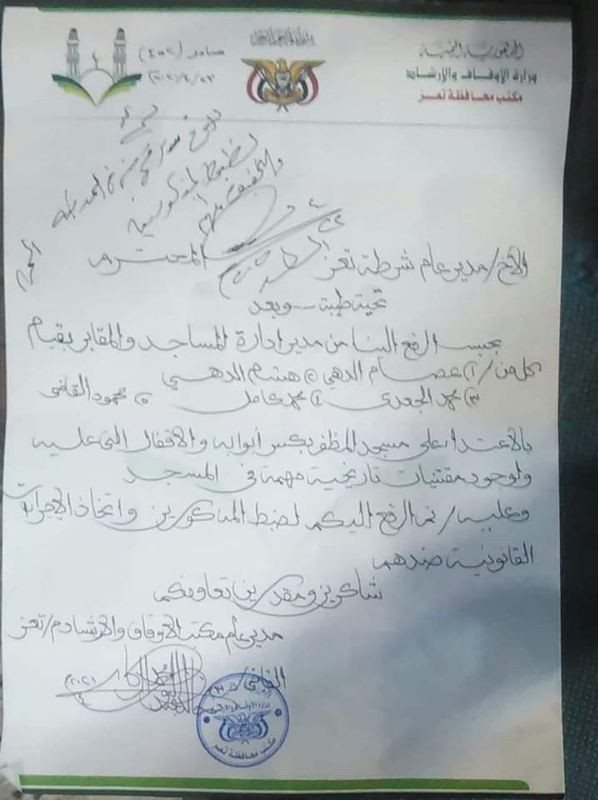 الجمهورية اليمنية
وزارة الأوقاف والإرشاد
مكتب محافظة تعز
بسم الله الرحمن الرحيم
صادر (٤٥٢)
لضبط المذكورين
الأخ/مدير عام شرطة تعز المحترم
تحية طيبة ـ وبعد
بحسب الرفع الينا من مدير ادارة المساجد والمقابر بقيام
كل من / ١) عصام الدهي ٢) هشام الدهي
٣) محمد الجعدي ٤) محمد كامل ٥) محمود القاضي
بالاعتداء على مسجد المظفر بكسر أبوابه والاقفال التي عليه
ولوجود مقتنيات تاريخية مهمة في المسجد
وعليه / تم الرفع اليكم لضبط المذكورين واتخاذ الاجراءات
القانونية ضدهم
شاكرين ومقدرين تعاونكم
مدير عام مكتب الاوقاف والارشاد م/تعز
مكتب محافظة تعز